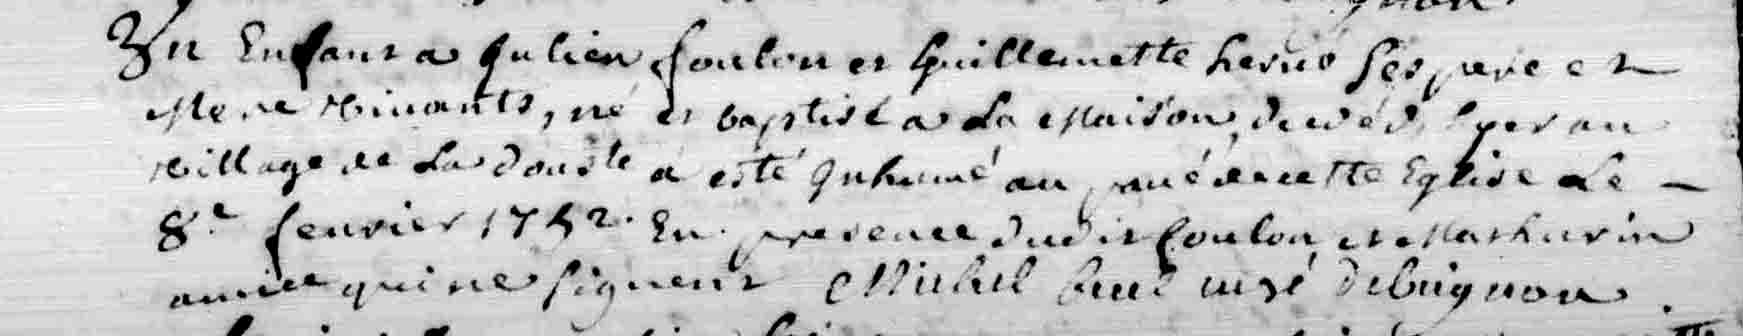 Un Enfant a Julien foulon et Guillemette hervé ses pere et
Mere vivants, né et baptisé a La Maison, decédé hyer au
village de La a esté Inhumé au pavé de cette Eglise Le
8.e fevrier 1752. En presence dudit foulon et Mathurin
qui ne signent Michel curé